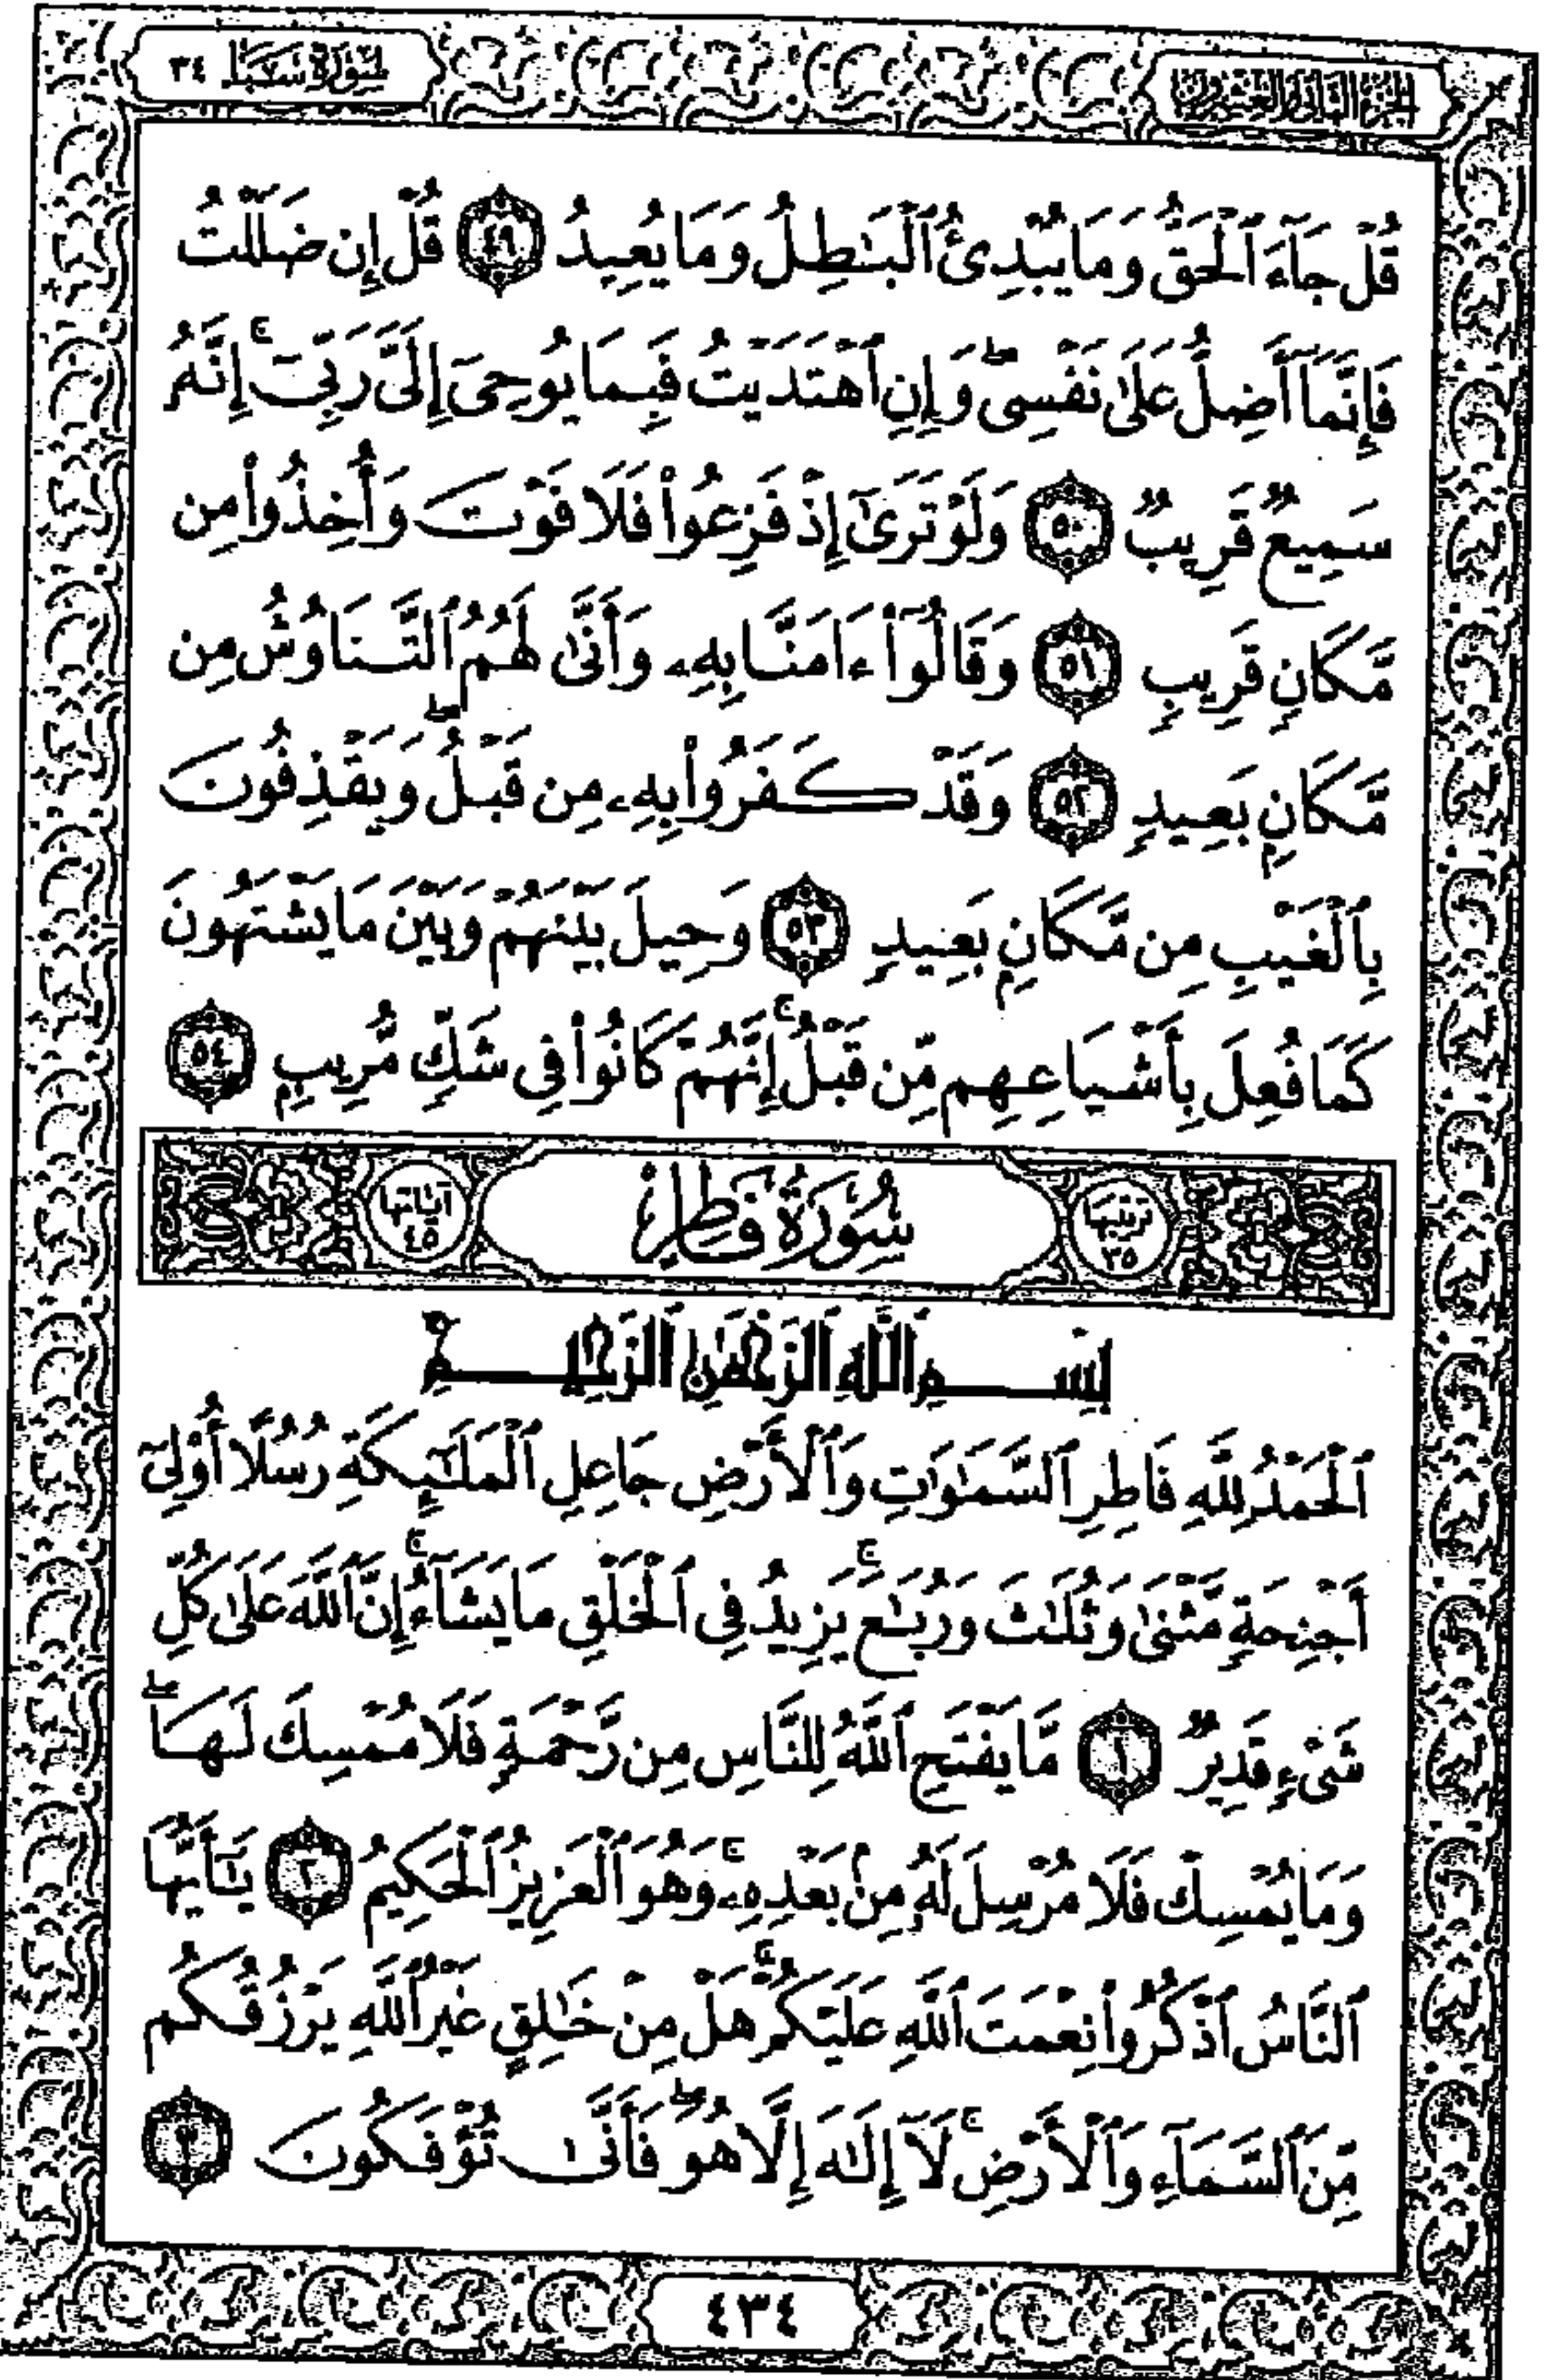 الجزء الثاني والعشرون
سورة سبأ ٣٤
قُلْ جَآءَ ٱلْحَقُّ وَمَا يُبْدِئُ ٱلْبَٰطِلُ وَمَا يُعِيدُ ٤٩ قُلْ إِن ضَلَلْتُ
فَإِنَّمَآ أَضِلُّ عَلَىٰ نَفْسِى ۖ وَإِنِ ٱهْتَدَيْتُ فَبِمَا يُوحِىٓ إِلَىَّ رَبِّىٓ ۚ إِنَّهُۥ
سَمِيعٌ قَرِيبٌ ٥٠ وَلَوْ تَرَىٰٓ إِذْ فَزِعُوا۟ فَلَا فَوْتَ وَأُخِذُوا۟ مِن
مَّكَانٍ قَرِيبٍ ٥١ وَقَالُوٓا۟ ءَامَنَّا بِهِۦ وَأَنَّىٰ لَهُمُ ٱلتَّنَاوُشُ مِن
مَّكَانٍۭ بَعِيدٍ ٥٢ وَقَدْ كَفَرُوا۟ بِهِۦ مِن قَبْلُ ۖ وَيَقْذِفُونَ
بِٱلْغَيْبِ مِن مَّكَانٍۭ بَعِيدٍ ٥٣ وَحِيلَ بَيْنَهُمْ وَبَيْنَ مَا يَشْتَهُونَ
كَمَا فُعِلَ بِأَشْيَاعِهِم مِّن قَبْلُ ۚ إِنَّهُمْ كَانُوا۟ فِى شَكٍّ مُّرِيبٍۭ ٥٤
ترتيبها ٣٥ سُورَةُ فَاطِرٍ آياتها ٤٥
بِسْمِ ٱللَّهِ ٱلرَّحْمَٰنِ ٱلرَّحِيمِ
ٱلْحَمْدُ لِلَّهِ فَاطِرِ ٱلسَّمَٰوَٰتِ وَٱلْأَرْضِ جَاعِلِ ٱلْمَلَٰٓئِكَةِ رُسُلًا أُو۟لِىٓ
أَجْنِحَةٍ مَّثْنَىٰ وَثُلَٰثَ وَرُبَٰعَ ۚ يَزِيدُ فِى ٱلْخَلْقِ مَا يَشَآءُ ۚ إِنَّ ٱللَّهَ عَلَىٰ كُلِّ
شَىْءٍ قَدِيرٌ ١ مَّا يَفْتَحِ ٱللَّهُ لِلنَّاسِ مِن رَّحْمَةٍ فَلَا مُمْسِكَ لَهَا ۖ
وَمَا يُمْسِكْ فَلَا مُرْسِلَ لَهُۥ مِنۢ بَعْدِهِۦ ۚ وَهُوَ ٱلْعَزِيزُ ٱلْحَكِيمُ ٢ يَٰٓأَيُّهَا
ٱلنَّاسُ ٱذْكُرُوا۟ نِعْمَتَ ٱللَّهِ عَلَيْكُمْ ۚ هَلْ مِنْ خَٰلِقٍ غَيْرُ ٱللَّهِ يَرْزُقُكُم
مِّنَ ٱلسَّمَآءِ وَٱلْأَرْضِ ۚ لَآ إِلَٰهَ إِلَّا هُوَ ۖ فَأَنَّىٰ تُؤْفَكُونَ ٣
٤٣٤